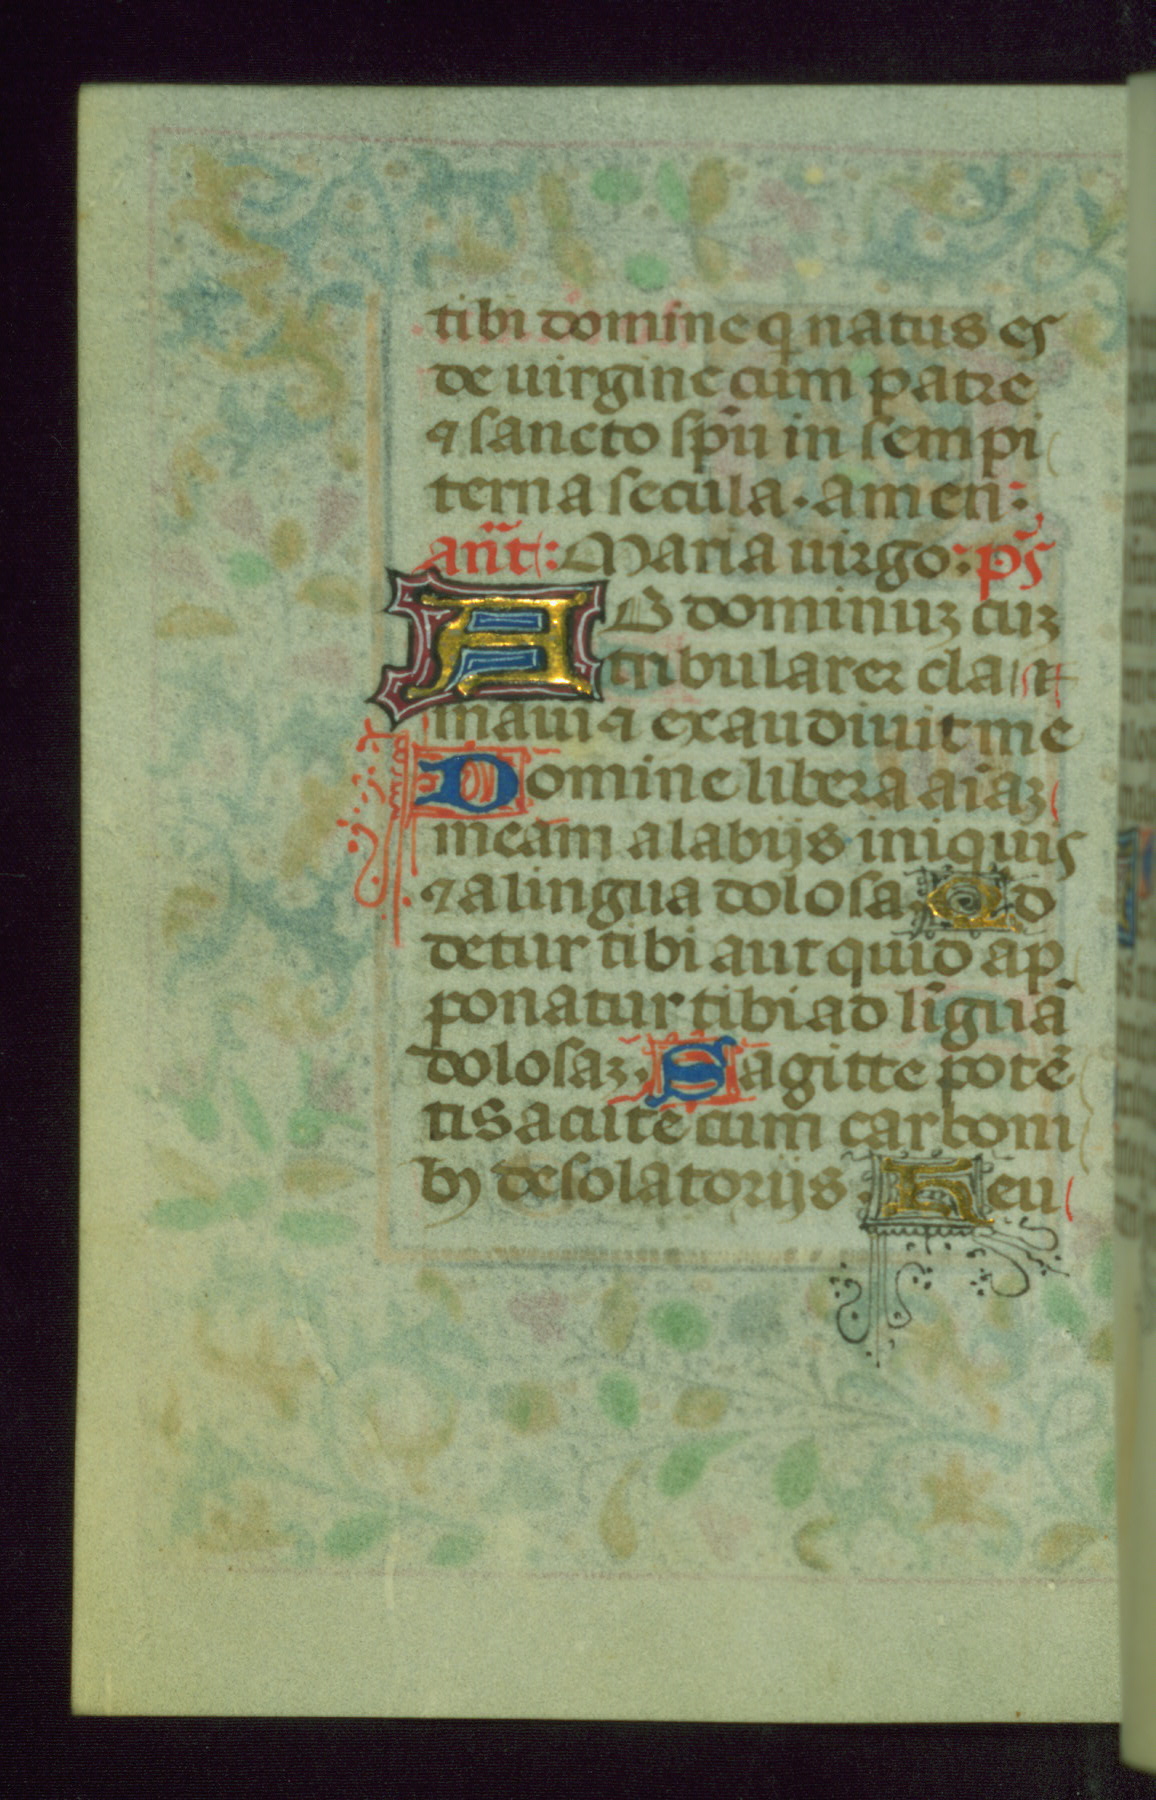 tibi domine q natus es
de uirgine cum patre
⁊ sancto sp̄u in sempi
terna secula · amen :
an̄t : Maria uirgo : ps̄
AB dominuꝫ cuꝫ
tribularer cla
maui ⁊ exaudiuit me
Domine libera aīaꝫ
meam a labijs iniquis
⁊ a lingua dolosa Qd
detur tibi aut quid ap
ponatur tibi ad līguā
dolosaꝫ · Sagitte potē
tis acute cum carboni
bꝰ desolatorijs · Heu